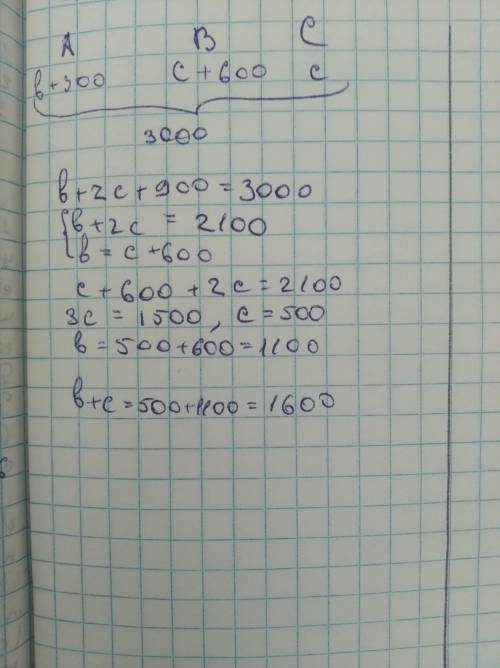 A B C
в+300 c+600 c
3000
в+2c+900=3000
в+2c = 2100
в = c+600
c+600+2c=2100
3c = 1500, c=500
в=500+600=1100
в+c=500+1100=1600